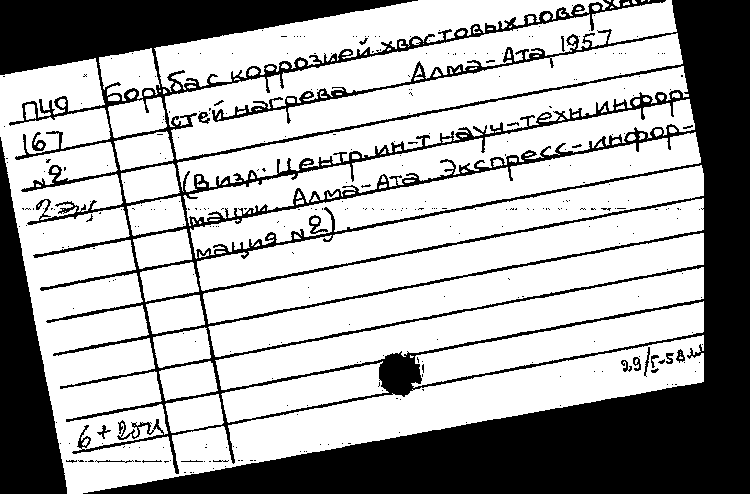 П49 Борьба с коррозией хвостовых поверхно
167 стей нагрева. Алма-Ата, 1957
№2
2 эц (В изд: Центр. ин-т науч-техн. инфор-
мации. Алма-Ата. Экспресс-инфор-
мация №2).
29/I-58
6 +